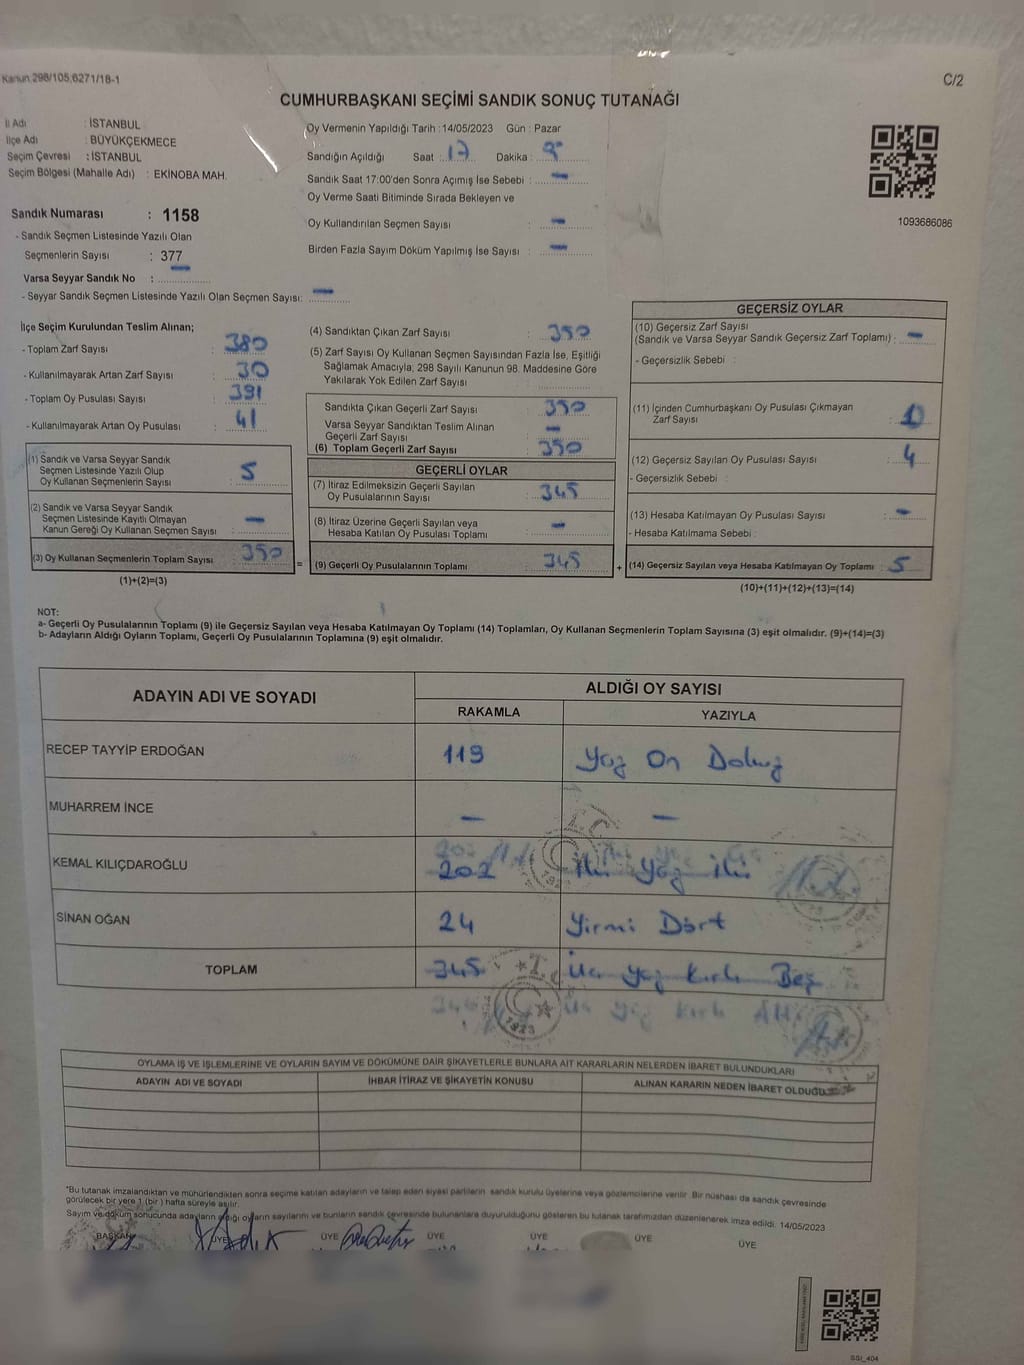 Kanun 298/105,6271/18-1
C/2
CUMHURBAŞKANI SEÇİMİ SANDIK SONUÇ TUTANAĞI
İl Adı : İSTANBUL
İlçe Adı : BÜYÜKÇEKMECE
Seçim Çevresi : İSTANBUL
Seçim Bölgesi (Mahalle Adı) : EKİNOBA MAH.
Sandık Numarası : 1158
- Sandık Seçmen Listesinde Yazılı Olan
Seçmenlerin Sayısı : 377
Varsa Seyyar Sandık No : —
- Seyyar Sandık Seçmen Listesinde Yazılı Olan Seçmen Sayısı: —
Oy Vermenin Yapıldığı Tarih : 14/05/2023 Gün : Pazar
Sandığın Açıldığı Saat : 17 Dakika :
Sandık Saat 17:00'den Sonra Açımış İse Sebebi : —
Oy Verme Saati Bitiminde Sırada Bekleyen ve
Oy Kullandırılan Seçmen Sayısı : —
Birden Fazla Sayım Döküm Yapılmış İse Sayısı : —
1093686086
İlçe Seçim Kurulundan Teslim Alınan;
- Toplam Zarf Sayısı : 380
- Kullanılmayarak Artan Zarf Sayısı : 30
- Toplam Oy Pusulası Sayısı : 391
- Kullanılmayarak Artan Oy Pusulası : 41
(1) Sandık ve Varsa Seyyar Sandık
Seçmen Listesinde Yazılı Olup
Oy Kullanan Seçmenlerin Sayısı : 5
(2) Sandık ve Varsa Seyyar Sandık
Seçmen Listesinde Kayıtlı Olmayan
Kanun Gereği Oy Kullanan Seçmen Sayısı : —
(3) Oy Kullanan Seçmenlerin Toplam Sayısı : 350
(1)+(2)=(3)
=
(4) Sandıktan Çıkan Zarf Sayısı : 350
(5) Zarf Sayısı Oy Kullanan Seçmen Sayısından Fazla İse, Eşitliği
Sağlamak Amacıyla; 298 Sayılı Kanunun 98. Maddesine Göre
Yakılarak Yok Edilen Zarf Sayısı :
Sandıkta Çıkan Geçerli Zarf Sayısı : 350
Varsa Seyyar Sandıktan Teslim Alınan
Geçerli Zarf Sayısı : —
(6) Toplam Geçerli Zarf Sayısı : 350
GEÇERLİ OYLAR
(7) İtiraz Edilmeksizin Geçerli Sayılan
Oy Pusulalarının Sayısı : 345
(8) İtiraz Üzerine Geçerli Sayılan veya
Hesaba Katılan Oy Pusulası Toplamı : —
(9) Geçerli Oy Pusulalarının Toplamı : 345
+
GEÇERSİZ OYLAR
(10) Geçersiz Zarf Sayısı
(Sandık ve Varsa Seyyar Sandık Geçersiz Zarf Toplamı) : —
- Geçersizlik Sebebi :
(11) İçinden Cumhurbaşkanı Oy Pusulası Çıkmayan
Zarf Sayısı : 1
(12) Geçersiz Sayılan Oy Pusulası Sayısı : 4
- Geçersizlik Sebebi :
(13) Hesaba Katılmayan Oy Pusulası Sayısı : —
- Hesaba Katılmama Sebebi :
(14) Geçersiz Sayılan veya Hesaba Katılmayan Oy Toplamı : 5
(10)+(11)+(12)+(13)=(14)
NOT:
a- Geçerli Oy Pusulalarının Toplamı (9) ile Geçersiz Sayılan veya Hesaba Katılmayan Oy Toplamı (14) Toplamları, Oy Kullanan Seçmenlerin Toplam Sayısına (3) eşit olmalıdır. (9)+(14)=(3)
b- Adayların Aldığı Oyların Toplamı, Geçerli Oy Pusulalarının Toplamına (9) eşit olmalıdır.
ADAYIN ADI VE SOYADI
ALDIĞI OY SAYISI
RAKAMLA YAZIYLA
RECEP TAYYİP ERDOĞAN 119 Yüz On Dokuz
MUHARREM İNCE — —
KEMAL KILIÇDAROĞLU 202 İki Yüz İki
SİNAN OĞAN 24 Yirmi Dört
TOPLAM 345 Üç Yüz Kırk Beş
Üç Yüz Kırk
T.C.
1923
OYLAMA İŞ VE İŞLEMLERİNE VE OYLARIN SAYIM VE DÖKÜMÜNE DAİR ŞİKAYETLERLE BUNLARA AİT KARARLARIN NELERDEN İBARET BULUNDUKLARI
ADAYIN ADI VE SOYADI İHBAR İTİRAZ VE ŞİKAYETİN KONUSU ALINAN KARARIN NEDEN İBARET OLDUĞU
"Bu tutanak imzalandıktan ve mühürlendikten sonra seçime katılan adayların ve talep eden siyasi partilerin sandık kurulu üyelerine veya gözlemcilerine verilir. Bir nüshası da sandık çevresinde
görülecek bir yere 1 (bir ) hafta süreyle asılır.
Sayım ve döküm sonucunda adayların aldığı oyların sayılarını ve bunların sandık çevresinde bulunanlara duyurulduğunu gösteren bu tutanak tarafımızdan düzenlenerek imza edildi. 14/05/2023
BAŞKAN ÜYE ÜYE ÜYE ÜYE ÜYE ÜYE
SSI_404